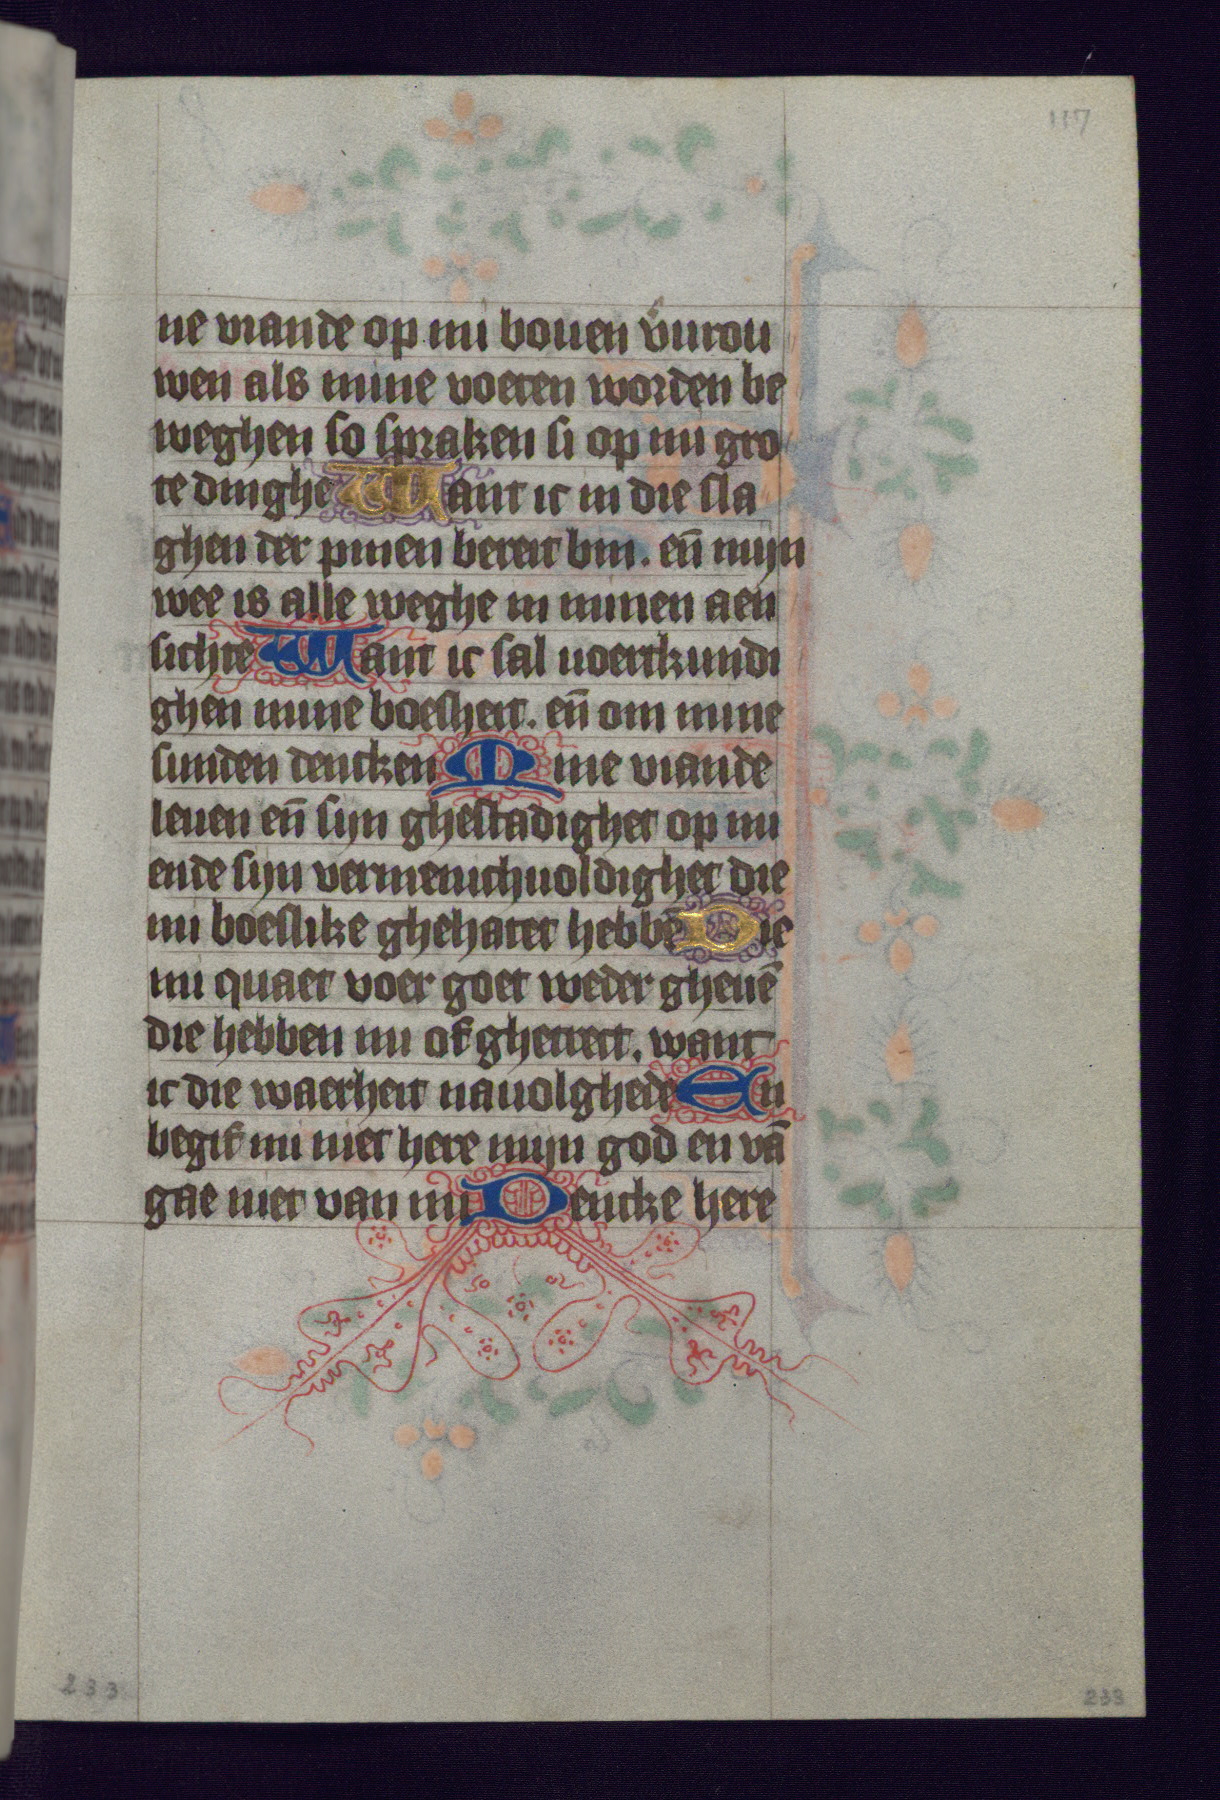 117
ne viande op mi bouen v̈urou
wen als mine voeten worden be
weghen so spraken si op mi gro
te dinghe Want ic in die sla
ghen der pinen bereit bin. en̄ mijn
wee is alle weghe in minen aen
sichte Want ic sal uoertkundi
ghen mine boesheit. en̄ om mine
sunden dencken Mine viande
leuen en̄ sijn ghestadighet op mi
ende sijn vermenichuoldighet die
mi boeslike ghehatet hebbē Die
mi quaet voer goet weder gheuē
die hebben mi of ghetrect. want
ic die waerheit nauolghede En
begif mi niet here mijn god en vā
gae niet van mi Dencke here
233
233